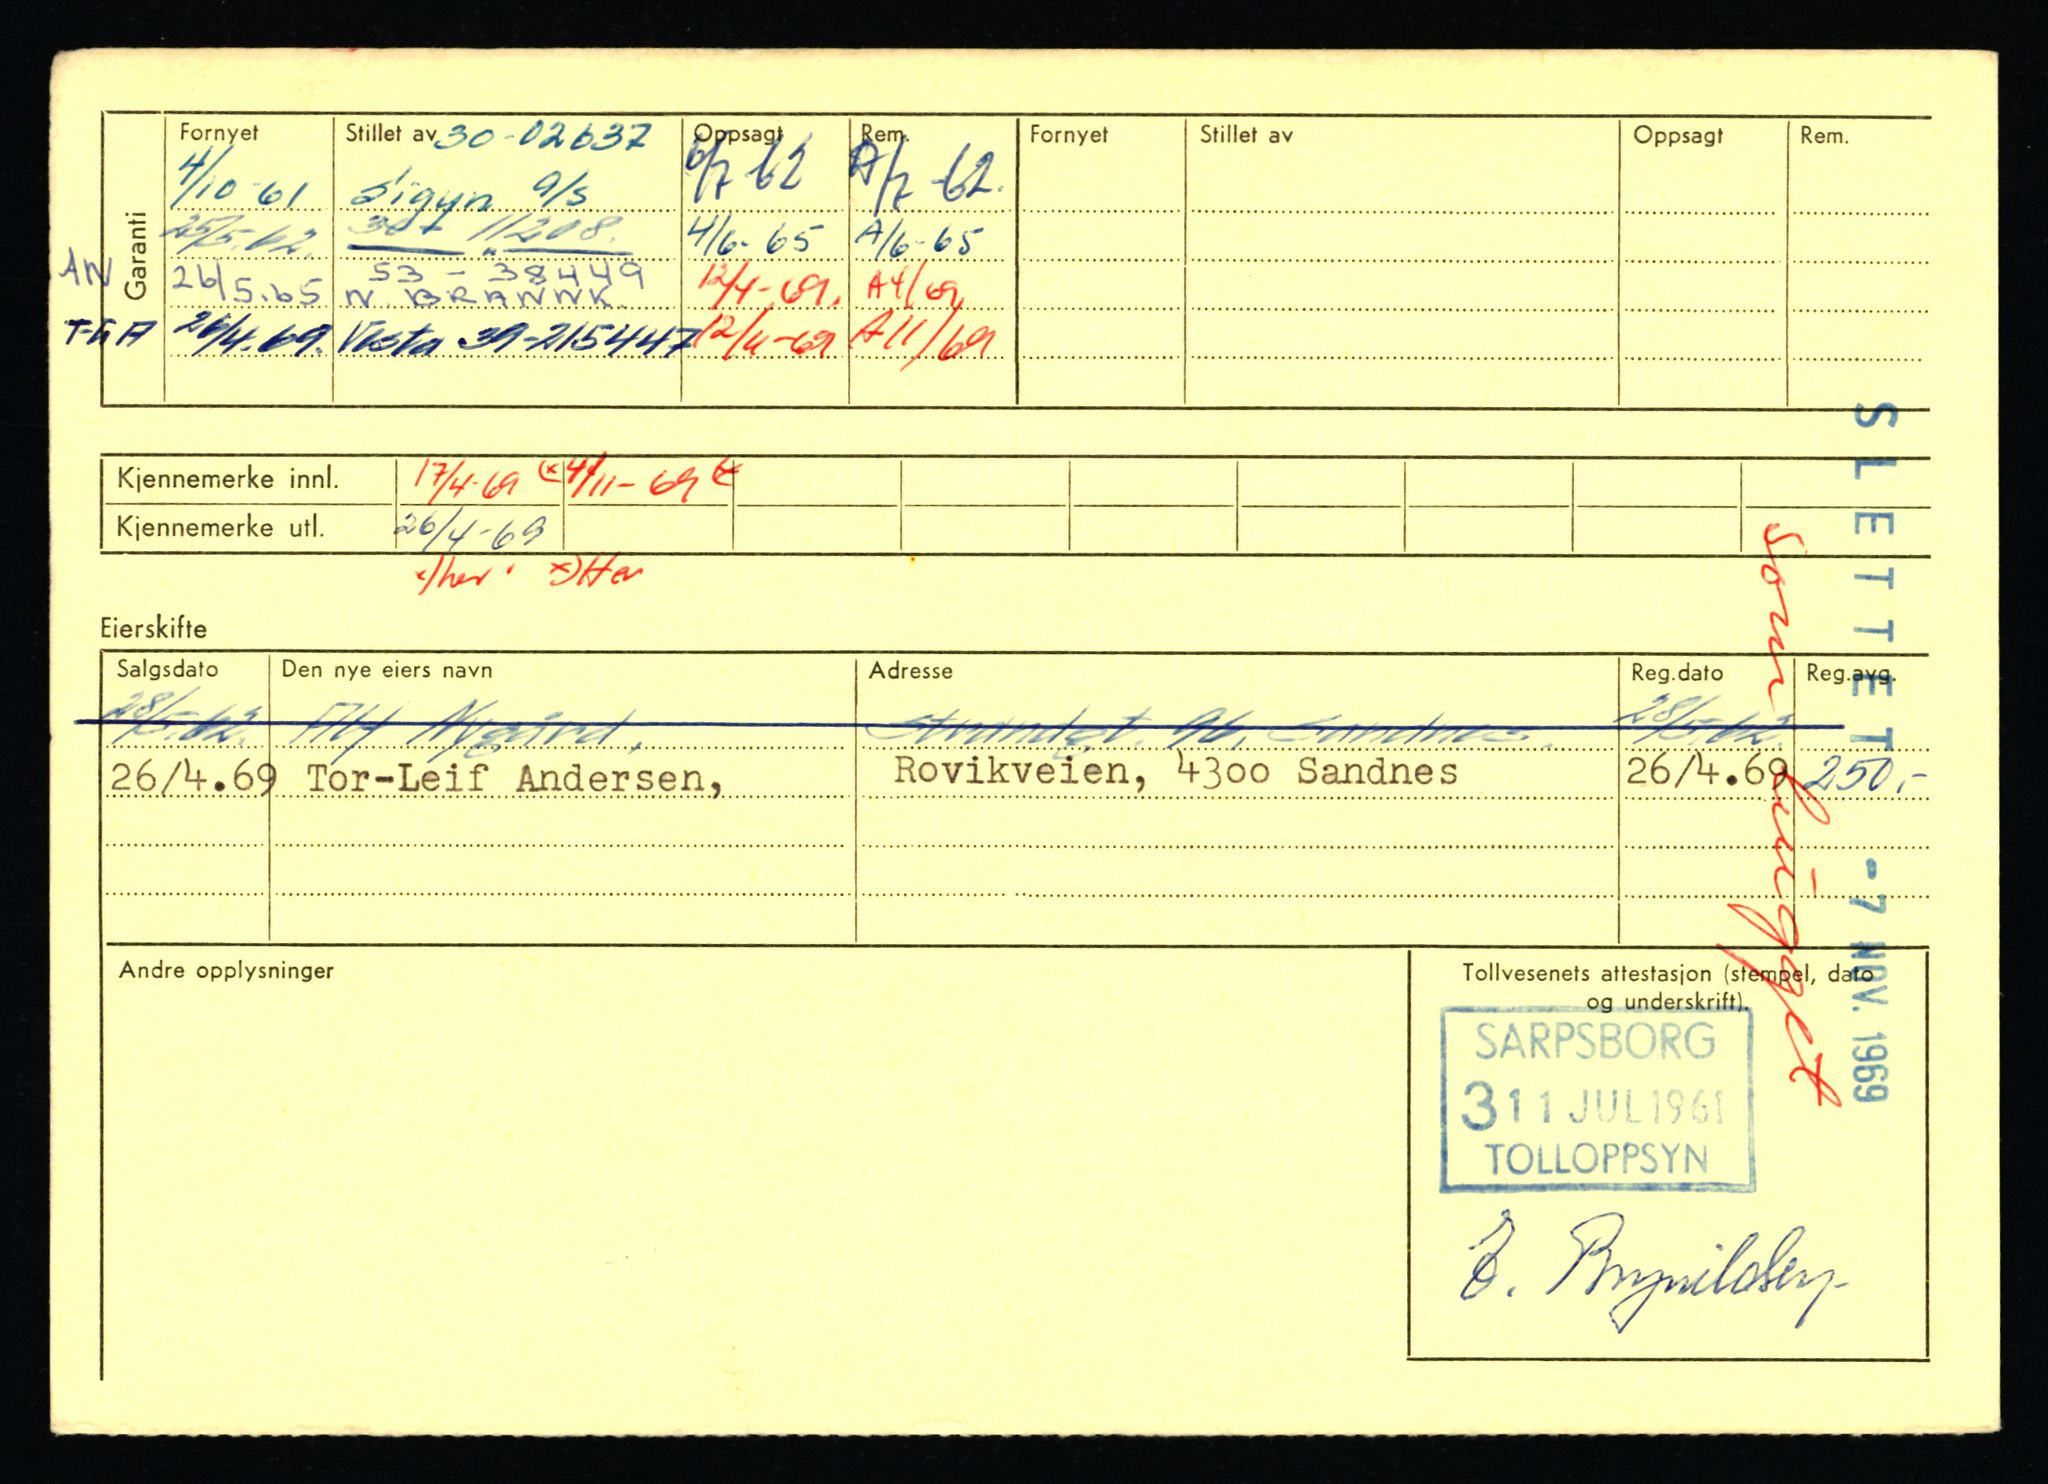 Garanti
Fornyet Stillet av 30-02637 Oppsagt Rem. Fornyet Stillet av Oppsagt Rem.
4/10-61 Sigyn a/s 6/7-62 A/7-62.
25/5.62. 11208. 4/6-65 A/6-65
AN 26/5.65 53-38449 12/4-69. A4/69
N. BRANNK.
26/4.69. Vesta 39-215447 A11/69
Kjennemerke innl. 17/4-69 (x 4/11-69 (x
Kjennemerke utl. 26/4-69
x/her x)Her
Eierskifte
Salgsdato Den nye eiers navn Adresse Reg.dato Reg.avg.
28/5-62. Alf Nygård, Strandgt. Sandnes. 28/5-62.
26/4.69 Tor-Leif Andersen, Rovikveien, 4300 Sandnes 26/4.69 250,-
Andre opplysninger
Tollvesenets attestasjon (stempel, dato
og underskrift).
SARPSBORG
3 11 JUL 1961
TOLLOPPSYN
E. Brynildsen
SLETTET -7 NOV. 1969
som hugget